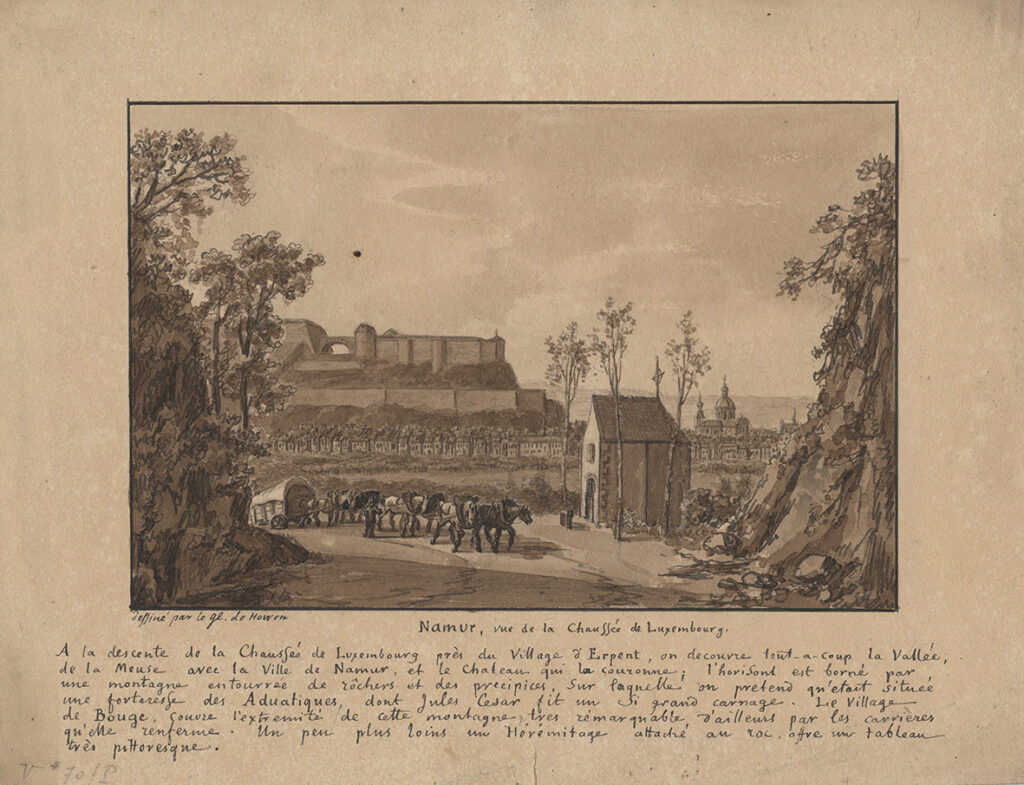 dessiné par le gl. de Howen
Namur, vue de la Chaussée de Luxembourg.
A la descente de la Chaussée de Luxembourg près du Village d'Erpent, on decouvre tout-a-coup la Vallée,
de la Meuse avec la Ville de Namur, et le Chateau qui la couronne; l'horisont est borné par
une montagne entourrée de rôchers et des precipices, Sur laquelle on pretend qu'etait située
une forteresse des Aduatiques, dont Jules Cesar fit un Si grand carnage. Le Village
de Bouge, couvre l'extremité de cette montagne, tres remarquable d'ailleurs par les carrieres
qu'elle renferme. Un peu plus loins un Hérémitage attaché au roc, offre un tableau
très pittoresque.